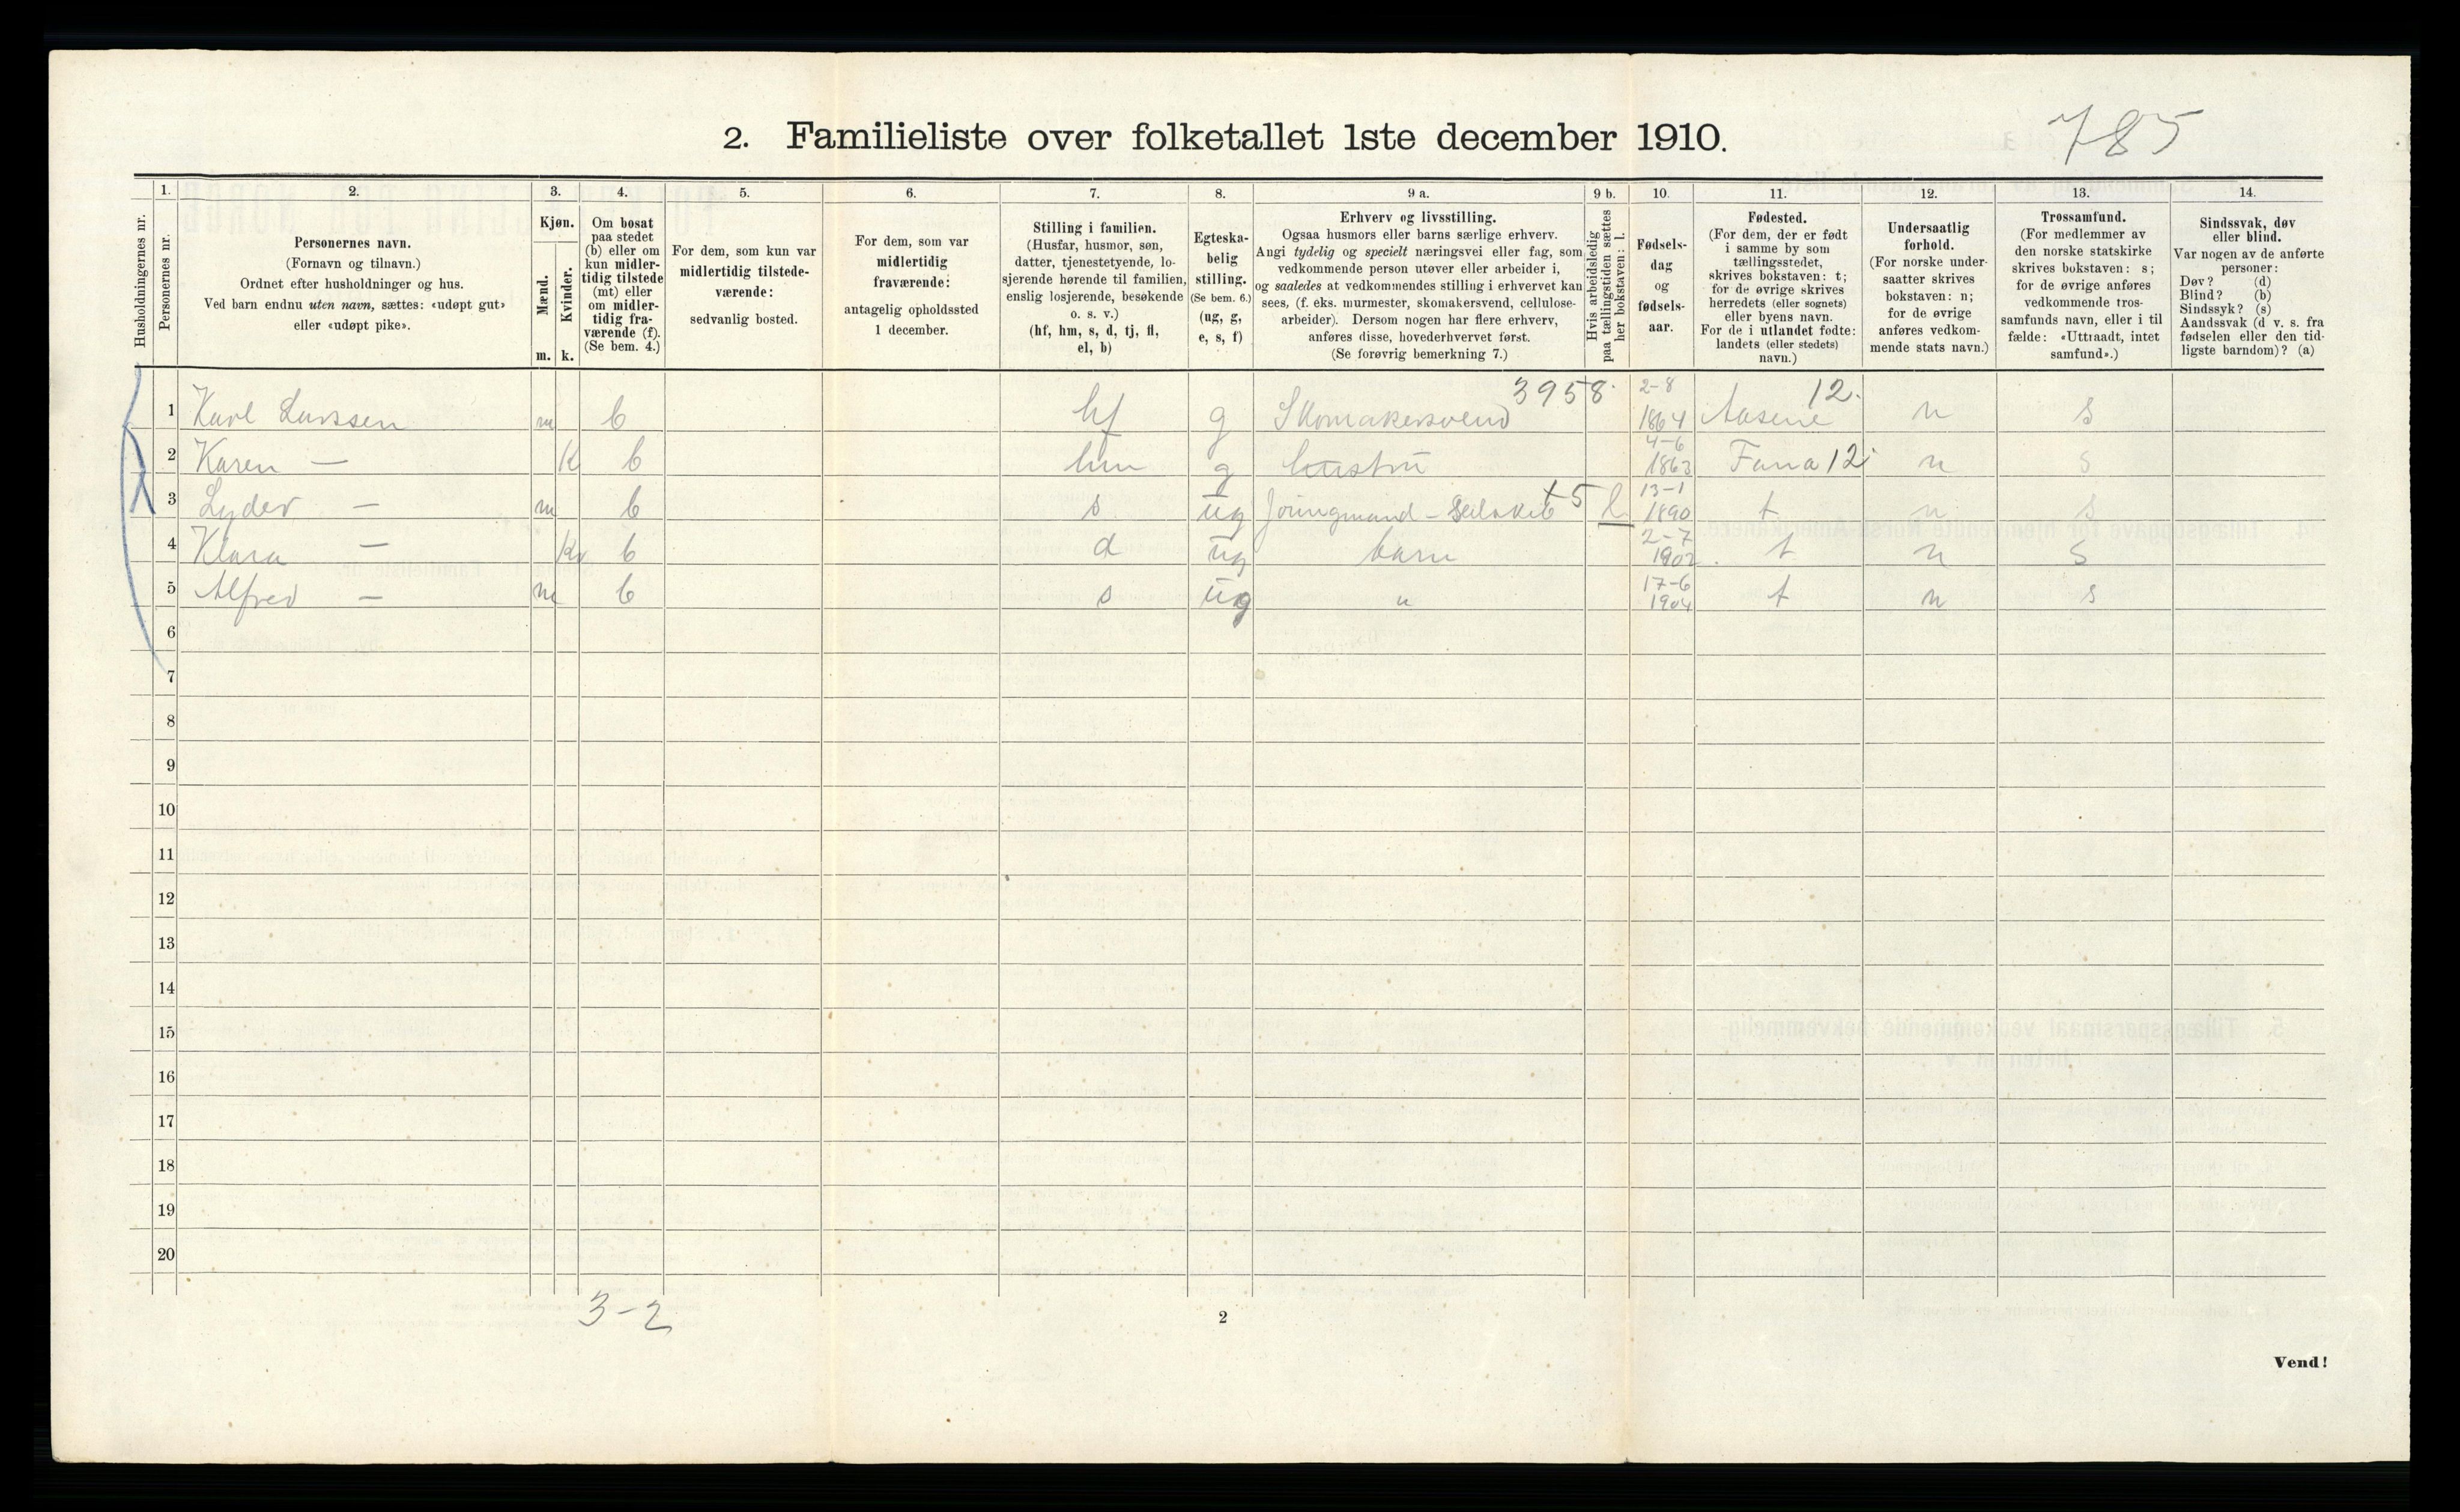 2. Familieliste over folketallet 1ste december 1910.
785
Husholdningernes nr.
1.
Personernes nr.
2.
Personernes navn.
(Fornavn og tilnavn.)
Ordnet efter husholdninger og hus.
Ved barn endnu uten navn, sættes: «udøpt gut»
eller «udøpt pike».
3.
Kjøn.
Mænd.
m.
Kvinder.
k.
4.
Om bosat
paa stedet
(b) eller om
kun midler-
tidig tilstede
(mt) eller
om midler-
tidig fra-
værende (f).
(Se bem. 4.)
5.
For dem, som kun var
midlertidig tilstede-
værende:
sedvanlig bosted.
6.
For dem, som var
midlertidig
fraværende:
antagelig opholdssted
1 december.
7.
Stilling i familien.
(Husfar, husmor, søn,
datter, tjenestetyende, lo-
sjerende hørende til familien,
enslig losjerende, besøkende
o. s. v.)
(hf, hm, s, d, tj, fl,
el, b)
8.
Egteska-
belig
stilling.
(Se bem. 6.)
(ug, g,
e, s, f)
9 a.
Erhverv og livsstilling.
Ogsaa husmors eller barns særlige erhverv.
Angi tydelig og specielt næringsvei eller fag, som
vedkommende person utøver eller arbeider i,
og saaledes at vedkommendes stilling i erhvervet kan
sees, (f. eks. murmester, skomakersvend, cellulose-
arbeider). Dersom nogen har flere erhverv,
anføres disse, hovederhvervet først.
(Se forøvrig bemerkning 7.)
9 b.
Hvis arbeidsledig
paa tællingstiden sættes
her bokstaven: l.
10.
Fødsels-
dag
og
fødsels-
aar.
11.
Fødested.
(For dem, der er født
i samme by som
tællingsstedet,
skrives bokstaven: t;
for de øvrige skrives
herredets (eller sognets)
eller byens navn.
For de i utlandet fødte:
landets (eller stedets)
navn.)
12.
Undersaatlig
forhold.
(For norske under-
saatter skrives
bokstaven: n;
for de øvrige
anføres vedkom-
mende stats navn.)
13.
Trossamfund.
(For medlemmer av
den norske statskirke
skrives bokstaven: s;
for de øvrige anføres
vedkommende tros-
samfunds navn, eller i til
fælde: «Uttraadt, intet
samfund».)
14.
Sindssvak, døv
eller blind.
Var nogen av de anførte
personer:
Døv? (d)
Blind? (b)
Sindssyk? (s)
Aandssvak (d v. s. fra
fødselen eller den tid-
ligste barndom)? (a)
1 Karl Larssen m b hf g Skomakersvend 3958. 2-8 1864 Aasene 12. n s
2 Karen — K b hm g hustru 4-6 1863 Fana 12 n s
3 Lyder — m b s ug Joungmand - Seilskib +5 l 13-1 1890 t n s
4 Klara — Kv b d ug barn 2-7 1902 t n s
5 Alfred — m b s ug " 17-6 1904 t n s
6
7
8
9
10
11
12
13
14
15
16
17
18
19
20
3-2
2
Vend!